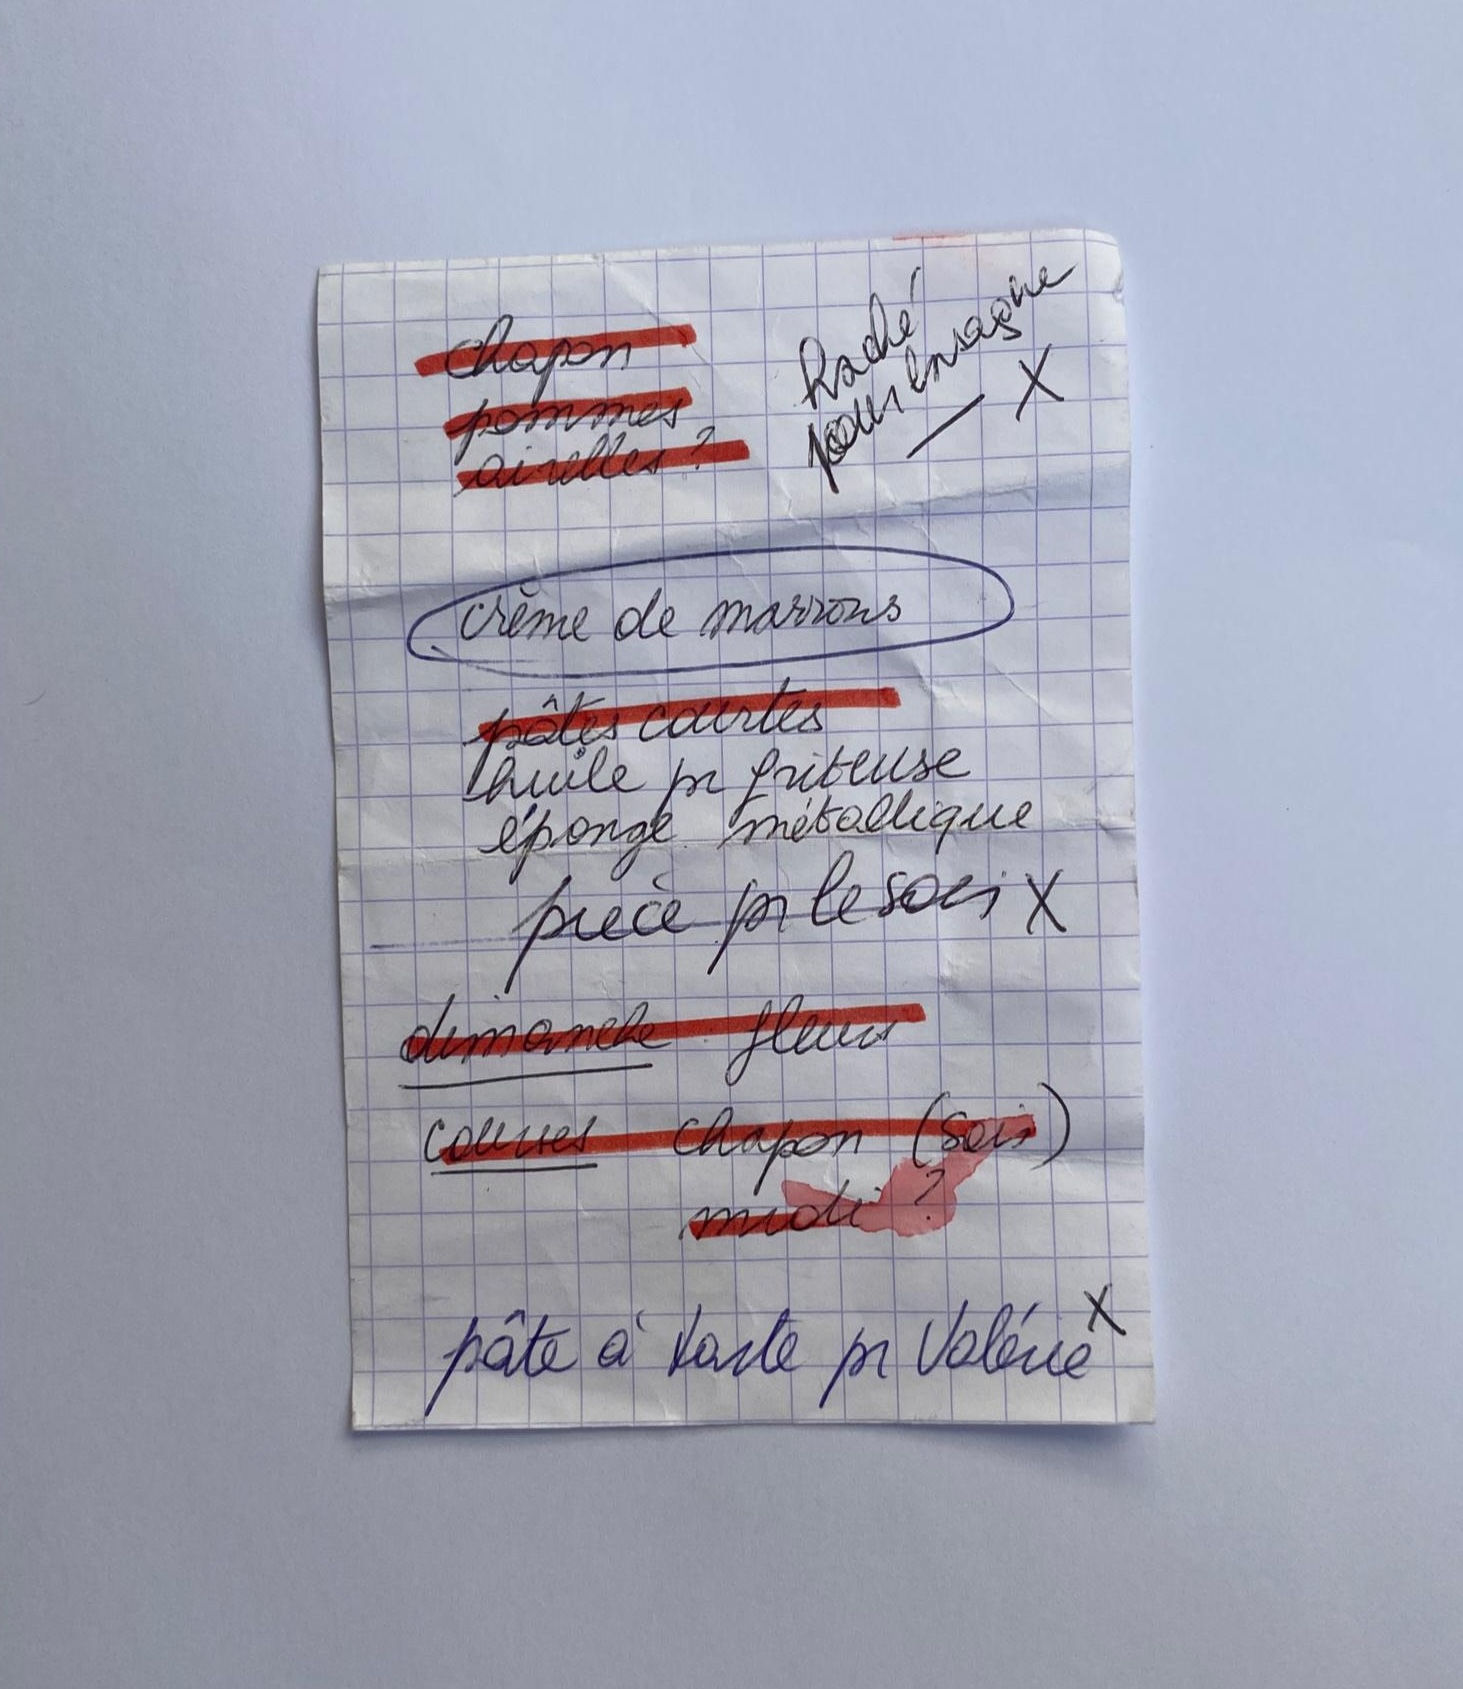 chapon
pommes
airelles ?
haché
pour lasagne
— X
crème de marrons
pâtes courtes
huile pr friteuse
éponge métallique
pièce pr le soir X
dimanche fleurs
courses chapon (soir)
midi ?
pâte à tarte pr Valérie X